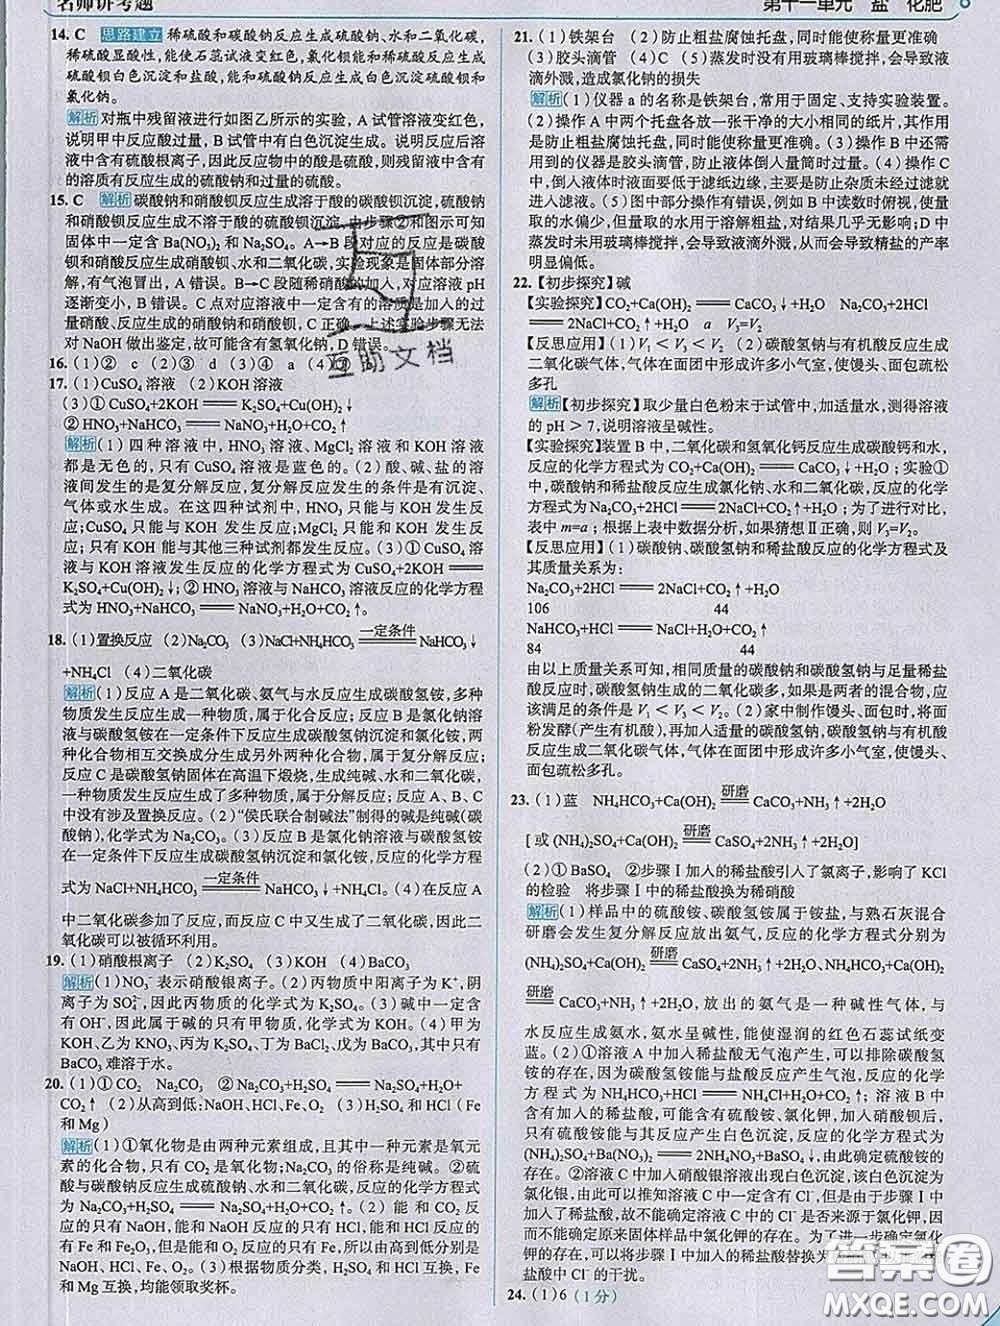 名师讲考题
第十一单元 盐 化肥
14. C 思路建立 稀硫酸和碳酸钠反应生成硫酸钠、水和二氧化碳，
稀硫酸显酸性，能使石蕊试液变红色，氯化钡能和稀硫酸反应生成
硫酸钡白色沉淀和盐酸，能和硫酸钠反应生成白色沉淀硫酸钡和
氯化钠。
解析 对瓶中残留液进行如图乙所示的实验，A 试管溶液变红色，
说明甲中反应酸过量，B 试管中有白色沉淀生成。说明反应后溶
液中含有硫酸根离子，因此反应物中的酸是硫酸，则残留液中含有
的溶质有反应生成的硫酸钠和过量的硫酸。
15. C 解析 碳酸钠和硝酸钡反应生成溶于酸的碳酸钡沉淀，硫酸
钠和硝酸钡反应生成不溶于酸的硫酸钡沉淀，由步骤②和图示可知
固体中一定含 Ba(NO₃)₂ 和 Na₂SO₄。A→B 段对应的反应是碳酸
钡和硝酸反应生成硝酸钡、水和二氧化碳，实验现象是固体部分溶
解，有气泡冒出，A 错误。B→C 段随稀硝酸的加入，对应溶液 pH
逐渐变小，B 错误。C 点对应溶液中一定含有的溶质是加入的过
量硝酸、反应生成的硝酸钠和硝酸钡，C 正确。上述实验步骤无法
对 NaOH 做出鉴定，故可能含有氢氧化钠，D 错误。
16. (1)② c (2)③ d (3)④ a (4)① b
17. (1)CuSO₄ 溶液 (2)KOH 溶液
(3)①CuSO₄+2KOH══K₂SO₄+Cu(OH)₂↓
②HNO₃+NaHCO₃══NaNO₃+H₂O+CO₂↑
解析 (1) 四种溶液中，HNO₃ 溶液、MgCl₂ 溶液和 KOH 溶液
都是无色的，只有 CuSO₄ 溶液是蓝色的。(2) 酸、碱、盐的溶
液间发生的是复分解反应，复分解反应发生的条件是有沉淀、
气体或水生成。在这四种试剂中，HNO₃ 只能与 KOH 发生反
应；CuSO₄ 只能与 KOH 发生反应；MgCl₂ 只能和 KOH 发生反
应；只有 KOH 能与其他三种试剂都发生反应。(3)①CuSO₄ 溶
液与 KOH 溶液发生反应的化学方程式为 CuSO₄+2KOH══
K₂SO₄+Cu(OH)₂↓；②HNO₃ 溶液与 NaHCO₃ 溶液反应的化学方程
式为 HNO₃+NaHCO₃══NaNO₃+H₂O+CO₂↑。
18. (1)置换反应 (2)Na₂CO₃ (3)NaCl+NH₄HCO₃══一定条件══NaHCO₃↓
+NH₄Cl (4)二氧化碳
解析 (1)反应 A 是二氧化碳、氨气与水反应生成碳酸氢铵，多种
物质发生反应生成一种物质，属于化合反应；反应 B 是氯化钠溶
液与碳酸氢铵在一定条件下反应生成碳酸氢钠沉淀和氯化铵，两
种化合物相互交换成分生成另外两种化合物，属于复分解反应；
反应 C 是碳酸氢钠固体在高温下煅烧，生成纯碱、水和二氧化碳，
一种物质发生反应生成了多种物质，属于分解反应；反应 A、B、C
中没有涉及置换反应。(2)“侯氏联合制碱法”制得的碱是纯碱(碳
酸钠)，化学式为 Na₂CO₃。(3)反应 B 是氯化钠溶液与碳酸氢铵
在一定条件下反应生成碳酸氢钠沉淀和氯化铵，反应的化学方程
式为 NaCl+NH₄HCO₃══一定条件══NaHCO₃↓+NH₄Cl。(4)在反应 A
中二氧化碳参加了反应，而反应 C 中又生成了二氧化碳，因此二
氧化碳可以被循环利用。
19. (1)硝酸根离子 (2)K₂SO₄ (3)KOH (4)BaCO₃
解析 (1)NO₃⁻表示硝酸银离子。(2)丙物质中阳离子为 K⁺，阴
离子为 SO₄²⁻，因此丙物质的化学式为 K₂SO₄。(3)碱中一定含
有 OH⁻，因此属于碱的只有甲物质，化学式为 KOH。(4)甲为
KOH、乙为 KNO₃、丙为 K₂SO₄、丁为 BaCl₂、戊为 BaCO₃，其中只有
BaCO₃ 难溶于水。
20. (1)①CO₂ Na₂CO₃ ②Na₂CO₃+H₂SO₄══Na₂SO₄+H₂O+
CO₂↑ (2)从高到低：NaOH、HCl、Fe、O₂ (3)H₂SO₄ 和 HCl(Fe
和 Mg)
解析 (1)①氧化物是由两种元素组成，且其中一种元素是氧元
素的化合物，只有 CO₂ 是氧化物；Na₂CO₃ 的俗称是纯碱。②硫
酸与碳酸钠反应生成硫酸钠、水和二氧化碳，反应的化学方程式为
Na₂CO₃+H₂SO₄══Na₂SO₄+H₂O+CO₂↑。(2) 能和 CO₂ 反
应的只有 NaOH，能和 NaOH 反应的只有 HCl，能和 HCl 反应的
有 Fe 和 Fe₂O₃，但是能和氧气反应的只有 Fe，故由高到低分别是
NaOH、HCl、Fe、O₂。(3)根据物质分类，H₂SO₄ 和 HCl 互换，Fe
和 Mg 互换，均能领取奖杯。
21. (1)铁架台 (2)防止粗盐腐蚀托盘，同时能使称量更准确
(3)胶头滴管 (4)C (5)蒸发时没有用玻璃棒搅拌，会导致液
滴外溅，造成氯化钠的损失
解析 (1)仪器 a 的名称是铁架台，常用于固定、支持实验装置。
(2)操作 A 中两个托盘各放一张干净的大小相同的纸片，其作用
是防止粗盐腐蚀托盘，同时能使称量更准确。(3)操作 B 中还需
用到的仪器是胶头滴管，防止液体倒入量筒时过量。(4)操作 C
中，倒入液体时液面要低于滤纸边缘，主要目的是防止杂质未经过
滤就进入滤液。(5)图中部分操作有错误，例如 B 中读数时俯视，使
量取的水偏少，但量取的水用于溶解粗盐，对结果几乎无影响；D 中
蒸发时未用玻璃棒搅拌，会导致液滴外溅，从而会导致精盐的产率
明显偏低。
22. 【初步探究】碱
【实验探究】CO₂+Ca(OH)₂══CaCO₃↓+H₂O Na₂CO₃+2HCl
══2NaCl+CO₂↑+H₂O a V₃=V₂
【反思应用】(1)V₁＜V₃＜V₂ (2)碳酸氢钠与有机酸反应生成
二氧化碳气体，气体在面团中形成许多小气室，使馒头、面包疏松
多孔
解析 【初步探究】取少量白色粉末于试管中，加适量水，测得溶液
的 pH＞7，说明溶液呈碱性。
【实验探究】装置 B 中，二氧化碳和氢氧化钙反应生成碳酸钙和水，
反应的化学方程式为 CO₂+Ca(OH)₂══CaCO₃↓+H₂O；实验①
中，碳酸钠和稀盐酸反应生成氯化钠、水和二氧化碳，反应的化学
方程式为 Na₂CO₃+2HCl══2NaCl+CO₂↑+H₂O；为了进行对比，
表中 m=a；根据上表中数据分析，如果猜想Ⅱ正确，则 V₃=V₂。
【反思应用】(1)碳酸钠、碳酸氢钠和稀盐酸反应的化学方程式及
其质量关系为：
Na₂CO₃+2HCl══2NaCl+CO₂↑+H₂O
106 44
NaHCO₃+HCl══NaCl+CO₂↑+H₂O
84 44
由以上质量关系可知，相同质量的碳酸钠和碳酸氢钠与足量稀盐
酸反应时，碳酸氢钠生成的二氧化碳多，如果是两者的混合物，应
该满足的条件是 V₁＜V₃＜V₂。(2)家中制作馒头、面包时，将面
粉发酵(产生有机酸)，再加入适量的碳酸氢钠，碳酸氢钠与有机酸
反应生成二氧化碳气体，气体在面团中形成许多小气室，使馒头、
面包疏松多孔。
23. (1)蓝 NH₄HCO₃+Ca(OH)₂══研磨══CaCO₃+NH₃↑+2H₂O
[或(NH₄)₂SO₄+Ca(OH)₂══研磨══CaSO₄+2NH₃↑+2H₂O]
(2)①BaSO₄ ②步骤Ⅰ加入的稀盐酸引入了氯离子，影响了 KCl
的检验 将步骤Ⅰ中的稀盐酸换为稀硝酸
解析 (1)样品中的硫酸铵、碳酸氢铵属于铵盐，与熟石灰混合
研磨会发生复分解反应放出氨气，反应的化学方程式分别为
(NH₄)₂SO₄+Ca(OH)₂══研磨══CaSO₄+2NH₃↑+2H₂O、NH₄HCO₃+Ca(OH)₂
══研磨══CaCO₃+NH₃↑+2H₂O，放出的氨气是一种碱性气体，与
水反应生成氨水，氨水呈碱性，能使湿润的红色石蕊试纸变
蓝。(2)①溶液 A 中加入稀盐酸无气泡产生，可以排除碳酸氢
铵的存在，因为碳酸氢铵能与盐酸反应产生气泡，反应的化学
方程式为 NH₄HCO₃+HCl══NH₄Cl+H₂O+CO₂↑；溶液 B 中
含有加入的稀盐酸，可能含有硫酸铵、氯化钾，加入硝酸钡后，
只有硫酸铵能与其反应产生白色沉淀，反应的化学方程式为
(NH₄)₂SO₄+Ba(NO₃)₂══2NH₄NO₃+BaSO₄↓，由此确定硫酸铵的
存在。②溶液 C 中加入硝酸银溶液出现白色沉淀，该白色沉淀为
氯化银，由此可以推知溶液 C 中一定含有 Cl⁻，但由于步骤Ⅰ中加
入了稀盐酸，故不能确定溶液 C 中的 Cl⁻是否来源于氯化钾，
因而不能确定原来固体样品中氯化钾的存在。为了进一步确定氯化
钾的存在，可以将步骤Ⅰ加入的稀盐酸替换为
盐酸中 Cl⁻的干扰。
24. (1)6(1 分)
互助文档
答案卷
MXQE.COM